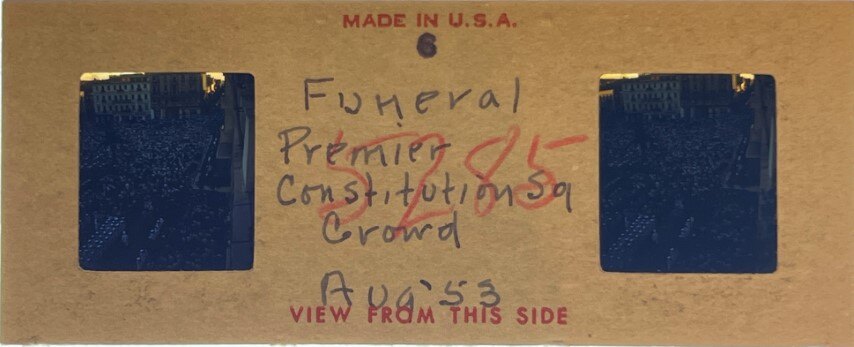 MADE IN U.S.A.
6
Funeral
Premier
5285
Constitution Sq
Crowd
Aug '53
VIEW FROM THIS SIDE